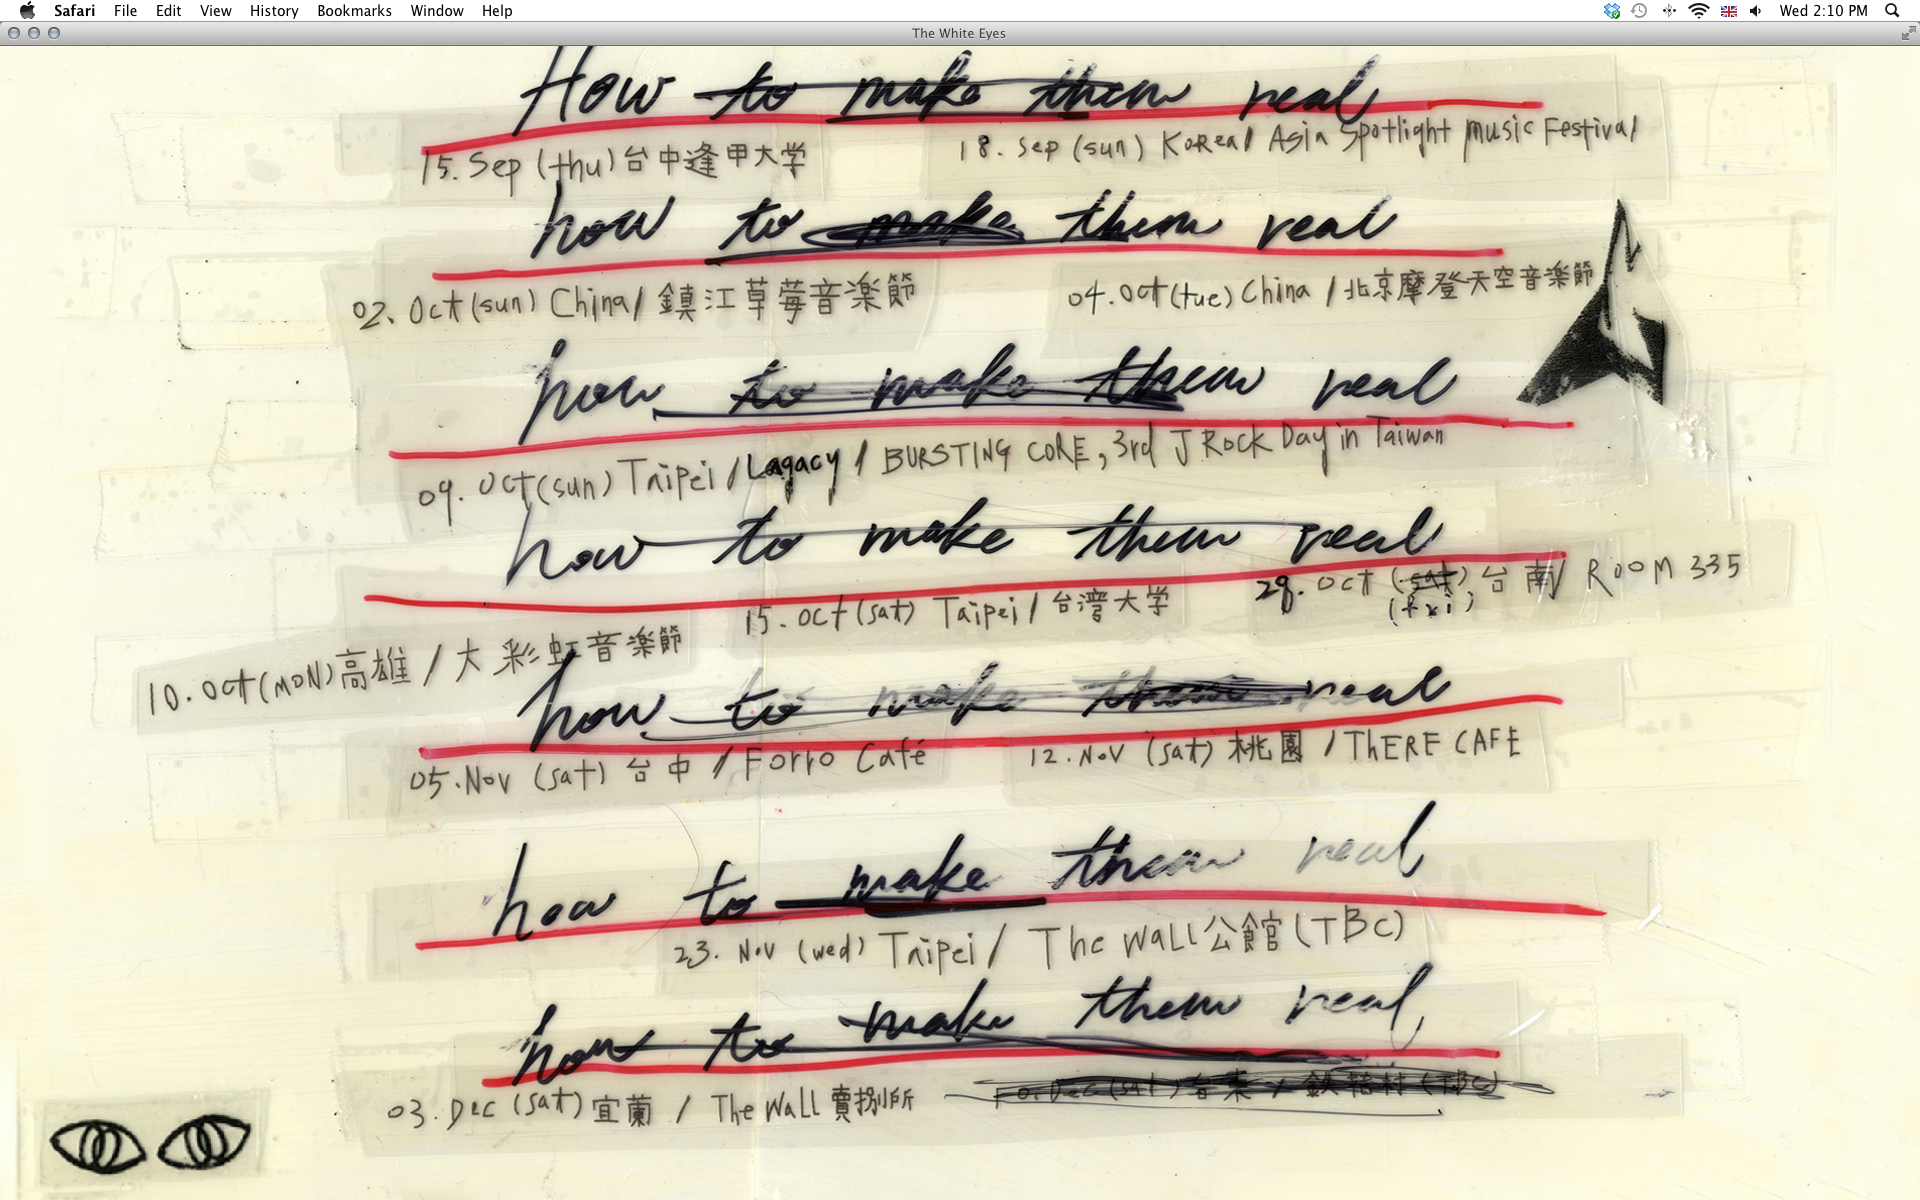 Safari File Edit View History Bookmarks Window Help Wed 2:10 PM
The White Eyes
How to make them real
15. Sep (thu) 台中逢甲大学
18. Sep (sun) Korea / Asia Spotlight music Festival
how to make them real
02. Oct (sun) China / 鎮江草莓音楽節
04. Oct (tue) China / 北京摩登天空音楽節
how to make them real
09. Oct (sun) Taipei / Lagacy / BURSTING CORE, 3rd J Rock Day in Taiwan
how to make them real
15. Oct (sat) Taipei / 台湾大学
28. Oct (sat) 台南 / ROOM 335
(fri)
10. Oct (MON) 高雄 / 大彩虹音楽節
how to make them real
05. Nov (sat) 台中 / Forro Café
12. Nov (sat) 桃園 / ThERE CAFE
how to make them real
23. Nov (wed) Taipei / The Wall 公館 (TBC)
how to make them real
03. Dec (sat) 宜蘭 / The Wall 賣捌所
Dec (sat) 台東 / (TBC)